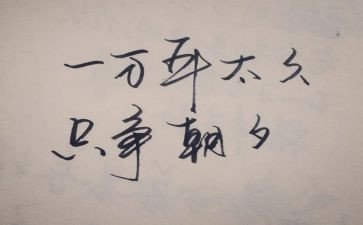 一万年太久
只争朝夕